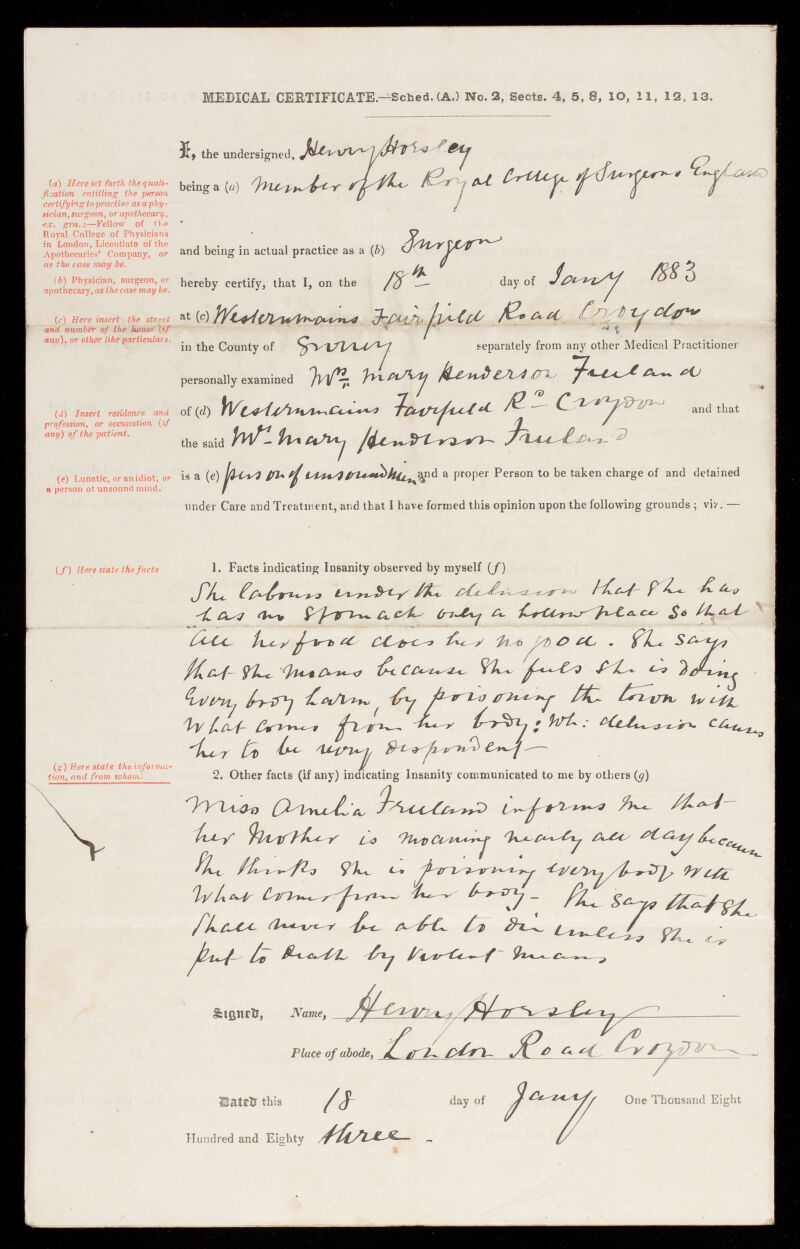 MEDICAL CERTIFICATE.—Sched. (A.) No. 2, Sects. 4, 5, 8, 10, 11, 12, 13.
I, the undersigned, Henry Horsley
(a) Here set forth the quali-
fication entitling the person
certifying to practise as a phy-
sician, surgeon, or apothecary,
ex. gra.:—Fellow of the
Royal College of Physicians
in London, Licentiate of the
Apothecaries' Company, or
as the case may be.
being a (a) Member of the Royal College of Surgeons England
and being in actual practice as a (b) Surgeon
(b) Physician, surgeon, or
apothecary, as the case may be.
hereby certify, that I, on the 18th day of Jany 1883
(c) Here insert the street
and number of the house (if
any), or other like particulars.
at (c) Westernmains Fairfield Road Croydon
in the County of Surrey separately from any other Medical Practitioner
personally examined Mrs. Mary Henderson Freeland
(d) Insert residence and
profession, or occupation (if
any) of the patient.
of (d) Westernmains Fairfield Rd Croydon and that
the said Mrs. Mary Henderson Freeland
(e) Lunatic, or an idiot, or
a person of unsound mind.
is a (e) person of unsound mind and a proper Person to be taken charge of and detained
under Care and Treatment, and that I have formed this opinion upon the following grounds; viz.—
(f) Here state the facts
1. Facts indicating Insanity observed by myself (f)
She labours under the delusion that she has
has no stomach only a hollow place so that
all her food does her no good. She says
that she moans because she feels she is doing
every body harm, by poisoning the town with
what comes from her body: wh: delusion causes
her to be very despondent—
(g) Here state the informa-
tion, and from whom.
2. Other facts (if any) indicating Insanity communicated to me by others (g)
Miss Amelia Freeland informs me that
her Mother is moaning nearly all day because
she thinks she is poisoning every body with
what comes from her body - She says that she
shall never be able to die unless she is
put to death by violent means
Signed, Name, Henry Horsley
Place of abode, London Road Croydon
Dated this 18 day of Jany One Thousand Eight
Hundred and Eighty three -